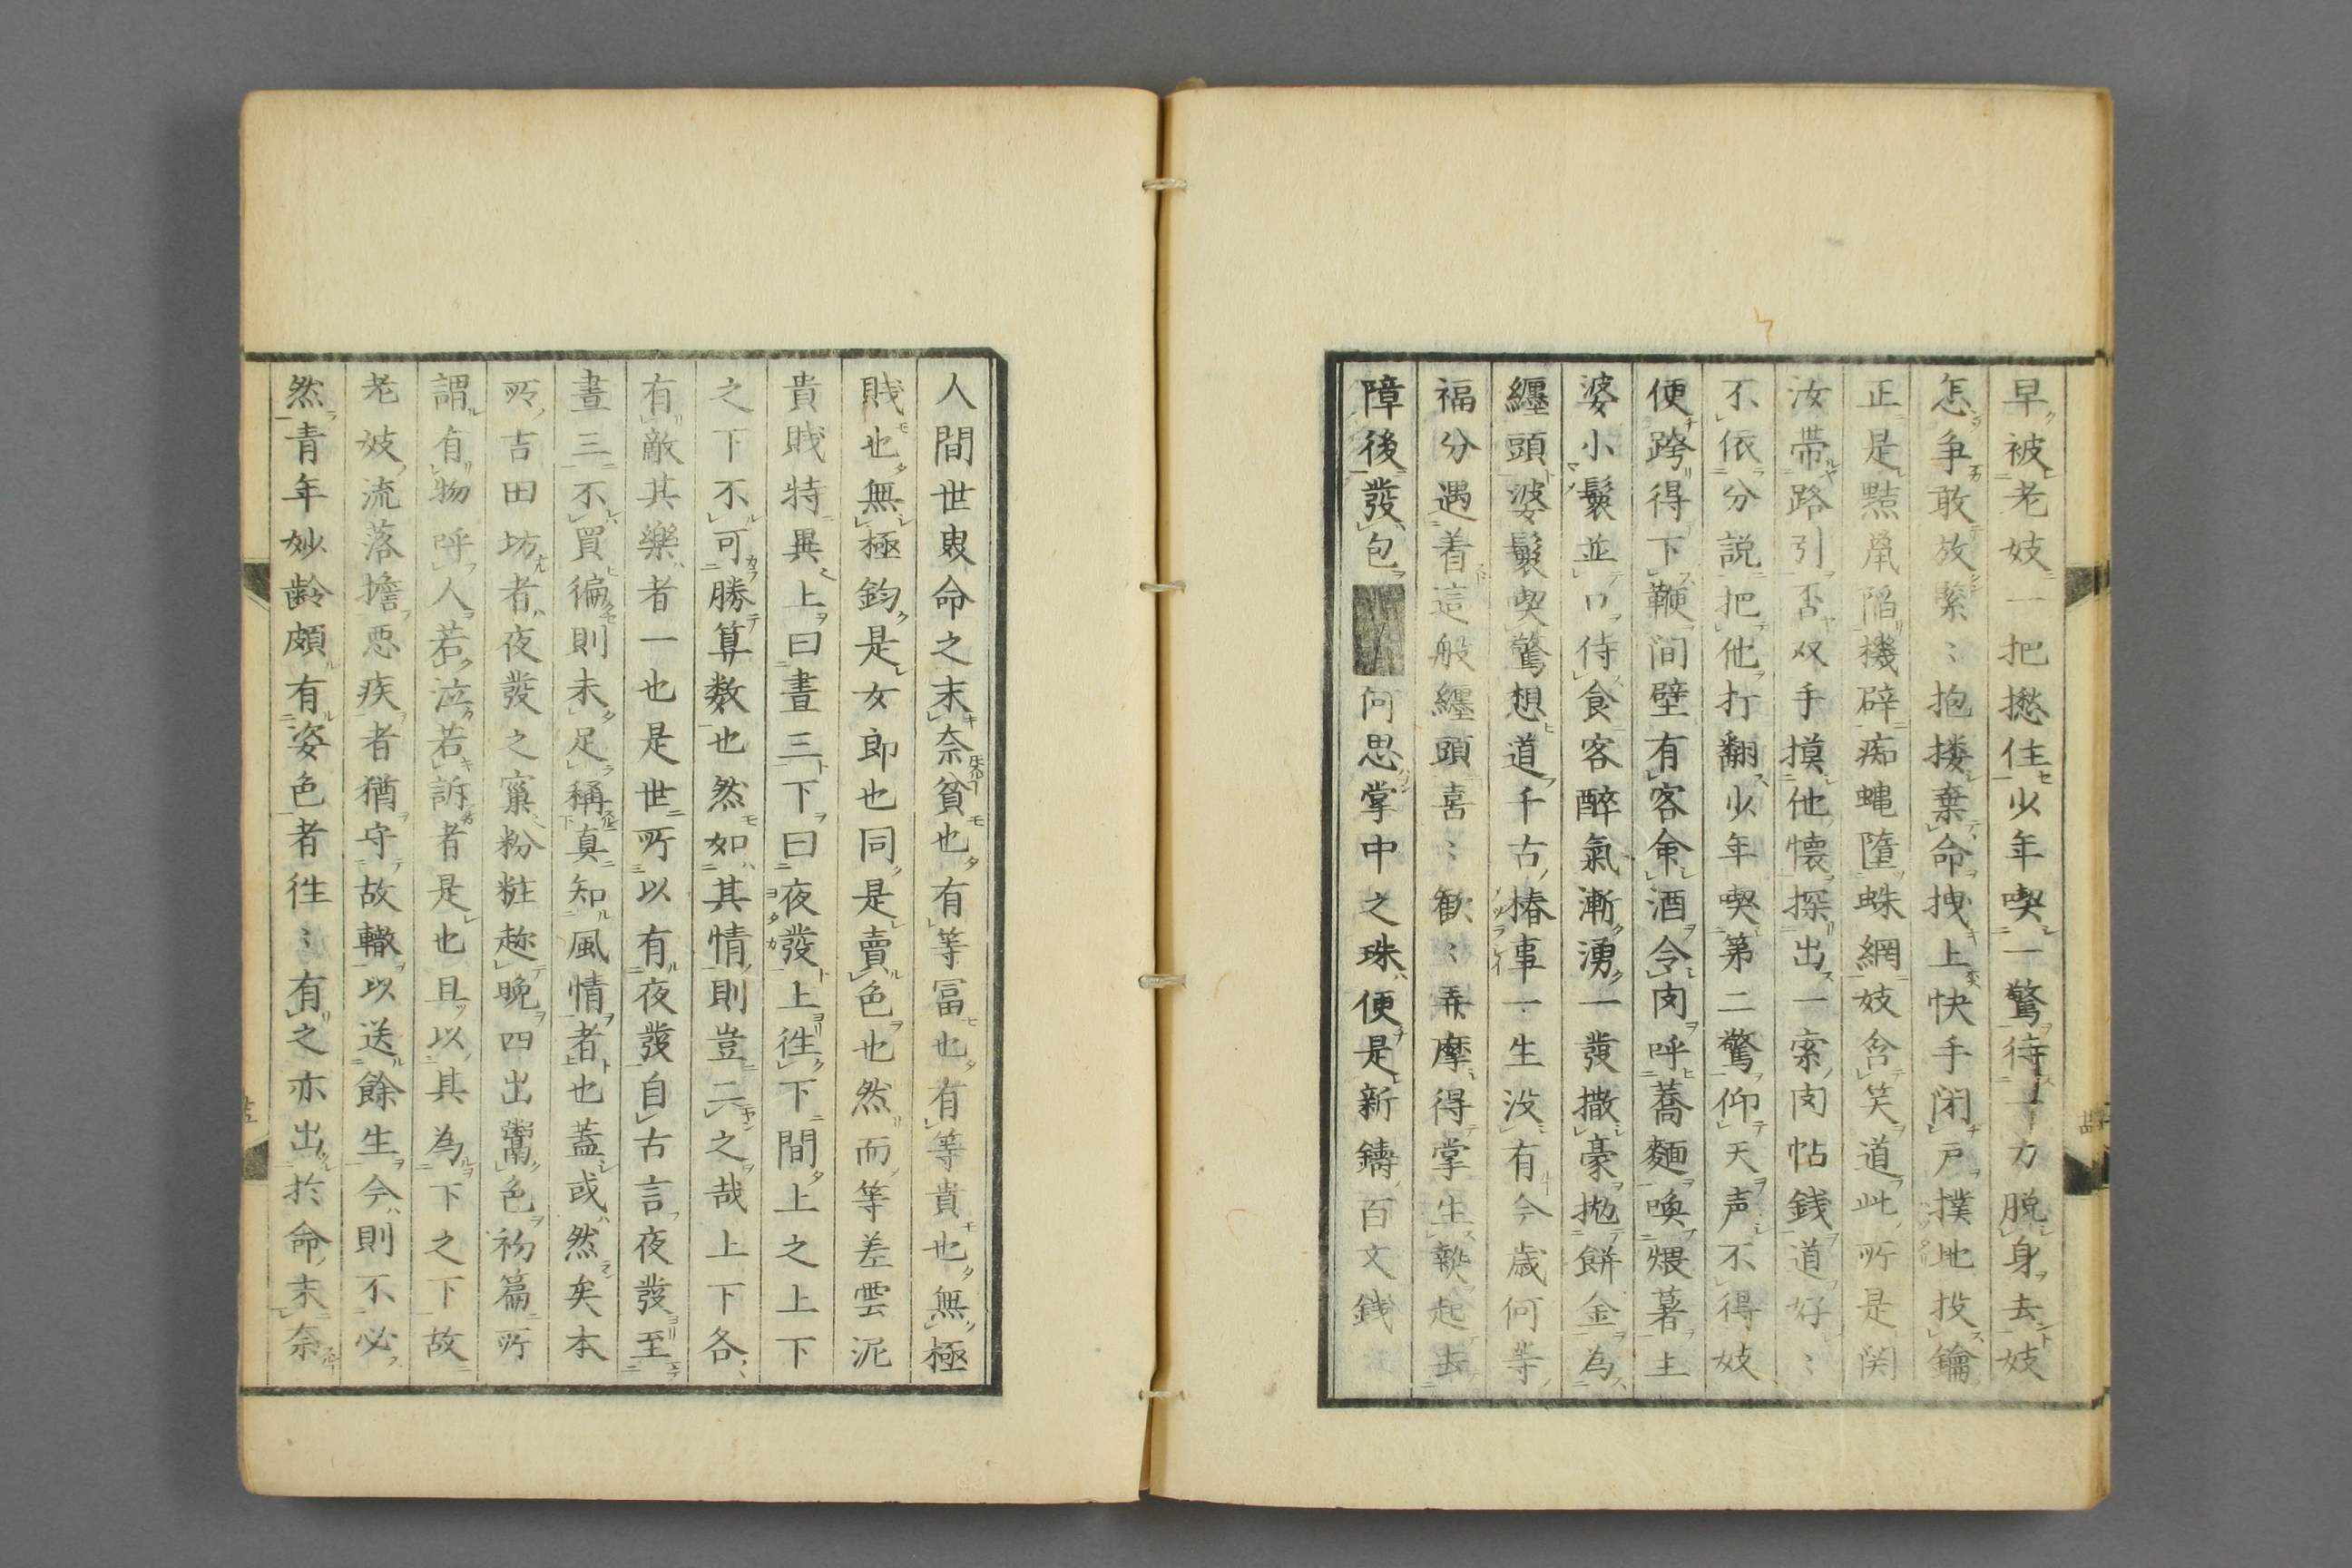 早被老妓一把撚住少年喫一驚待一力脱身去妓
怎争敢放緊〻抱搂棄命拽上快手闭戸撲地投鑰
正是黠鼠陷機辟痴蠅墮蛛網妓含笑道此所是関
汝帯路引否双手摸他懐探出一索肉帖銭道好〻
不依分説把他打翻少年喫第二驚仰天声不得妓
便跨得下鞕间壁有客命酒令肉呼蕎麵喚煨薯主
婆小鬟並口侍食客醉氣漸湧一發撒豪拋餅金為
纏頭婆鬟喫驚想道千古椿事一生没有今歳何等
福分遇着這般纏頭喜〻歓〻弄摩得掌生熱起去
障後發包 何思掌中之珠便是新鑄百文銭
人間世叓命之末奈貧也有等冨也有等貴也無極
賎也無極鈞是女郎也同是賣色也然而等差雲泥
貴賎特異上曰晝三下曰夜發上徃下間上之上下
之下不可勝算数也然如其情則豈二之哉上下各
有敵其樂者一也是世所以有夜發自古言夜發至
晝三不買徧則未足稱真知風情者也蓋或然矣本
所吉田坊者夜發之窠粉粧趂晩四出鬻色礿篇所
謂有物呼人若泣若訴者是也且以其為下之下故
老妓流落擔惡疾者猶守故轍以送餘生今則不必
然青年妙齢頗有姿色者徃〻有之亦出於命末奈